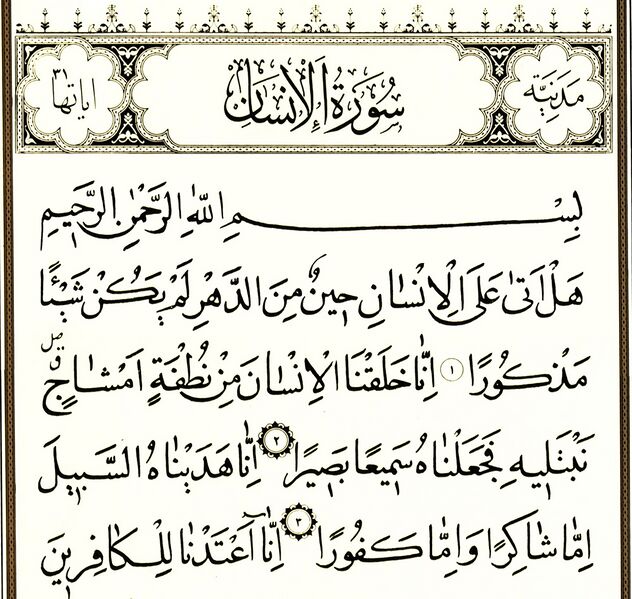 مَدَنِيَّة
سُورَةُ الْإِنْسَانِ
اياتها ٣١
بِسْمِ اللَّهِ الرَّحْمٰنِ الرَّحِيمِ
هَلْ اَتٰى عَلَى الْاِنْسَانِ حِينٌ مِنَ الدَّهْرِ لَمْ يَكُنْ شَيْئًا
مَذْكُورًا ١ اِنَّا خَلَقْنَا الْاِنْسَانَ مِنْ نُطْفَةٍ اَمْشَاجٍ
نَبْتَلِيهِ فَجَعَلْنَاهُ سَمِيعًا بَصِيرًا ٢ اِنَّا هَدَيْنَاهُ السَّبِيلَ
اِمَّا شَاكِرًا وَاِمَّا كَفُورًا ٣ اِنَّٓا اَعْتَدْنَا لِلْكَافِرِينَ